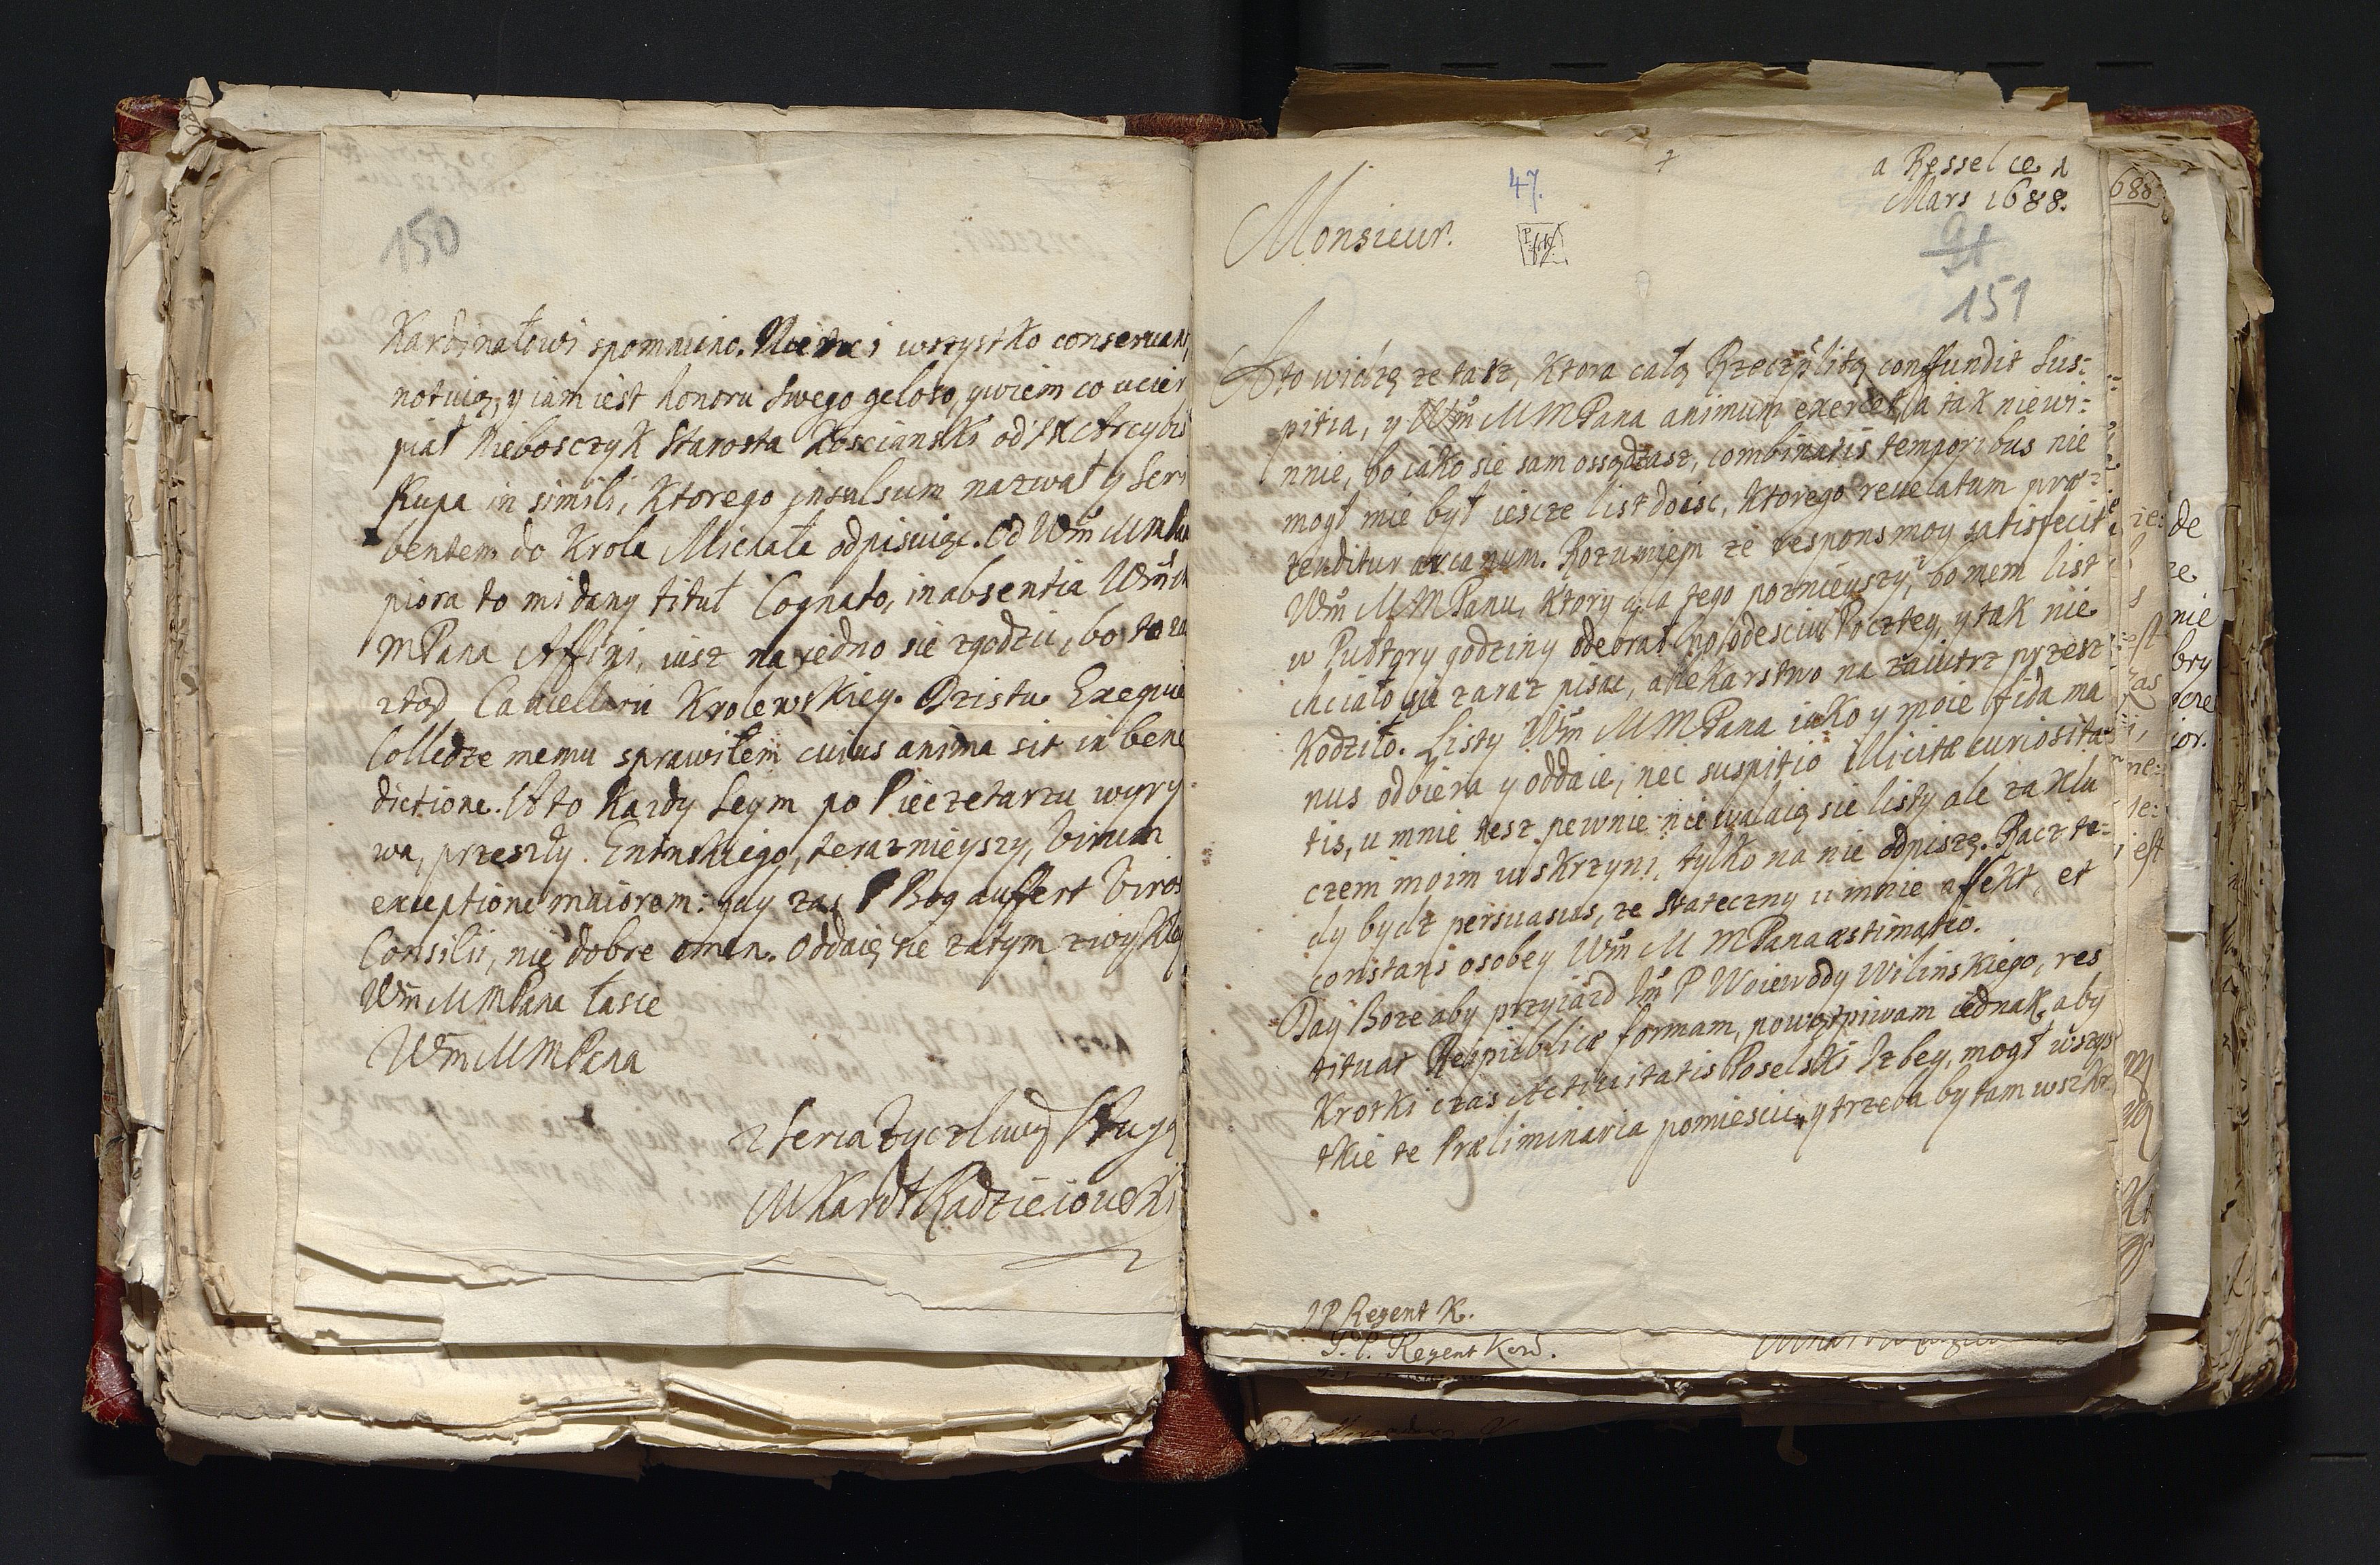 150
Kardynałowi spomniec. Niemci wszystko conseruaią,
notuią, y iam iest honoru swego geloso, y wiem co ucier
piał Niebosczyk Starosta Koscianski od IX Arcybis
kupa in simili, Ktorego insulsum nazwał y scri
bentem do Krola Michała odpisuiąc. Od Wm M M Pana
piora to mi dany tituł Cognato, in absentia Wm M
M Pana Affini, iusz na iedno sie zgodzic, bo to za
z tąd Cancellarii Krolewskiey. Dzis tu Exequie
Colledze memu sprawiłem cuius anima sit in bene
dictione. A to Kazdy Seym po Pieczetarzu wyry
wa, przeszły Eninskiego, teraznieyszy, Virum
exceptione maiorem: gdy zas P Bog auffert Viros
Consilii, nie dobre omen. Oddaię sie zatym zwykłey
Wm M M Pana łasce
Wm M M Pana
z serca życzliwy Sługa
M Kard Radzieiouski
47.
a Ressel ce 1
Mars 1688.
Monsieur.
151
A to widzę ze tasz, ktora całą Rzeczplitą conffundit sus:
pitia, y Wm M M Pana animum exercet, a tak niewi:
nnie, bo iako sie sam ossądzasz, combinatis temporibus nie
mogł mie był iescze list doisc, ktorego reuelatum prae:
tenditur arcanum. Rozumiem ze respons moy satisfecit
Wm M M Panu, ktory dla tego poznieyszy, bo mem list
w Pułtory godziny odebrał po odesciu Poczty, y tak nie
chciało sie zaraz pisac, a lekarstwo na zaiutrz przesz
kodziło. Listy Wm M M Pana iako y moie fida ma
nus odbiera y oddaie, nec suspitio illicitae curiosita
tis, u mnie tesz pewnie nie walaią sie listy ale za klu
czem moim w skrzyni, tylko na nie odpiszę. Racz te:
dy bydz persuasus, ze stateczny u mnie affekt, et
constans osobey Wm M M Pana aestimatio.
Day Boze aby przyiazd Im P Woiewody Wilinskiego, res
tituat Reipublicae formam, powątpiwam iednak, aby
krotki czas Actiuitatis Poselski Izbey, mogł wszys
tkie te Praeliminaria pomiescic, y trzeba by tam wszkr
J P Regent K.
J. P. Regent Kor.